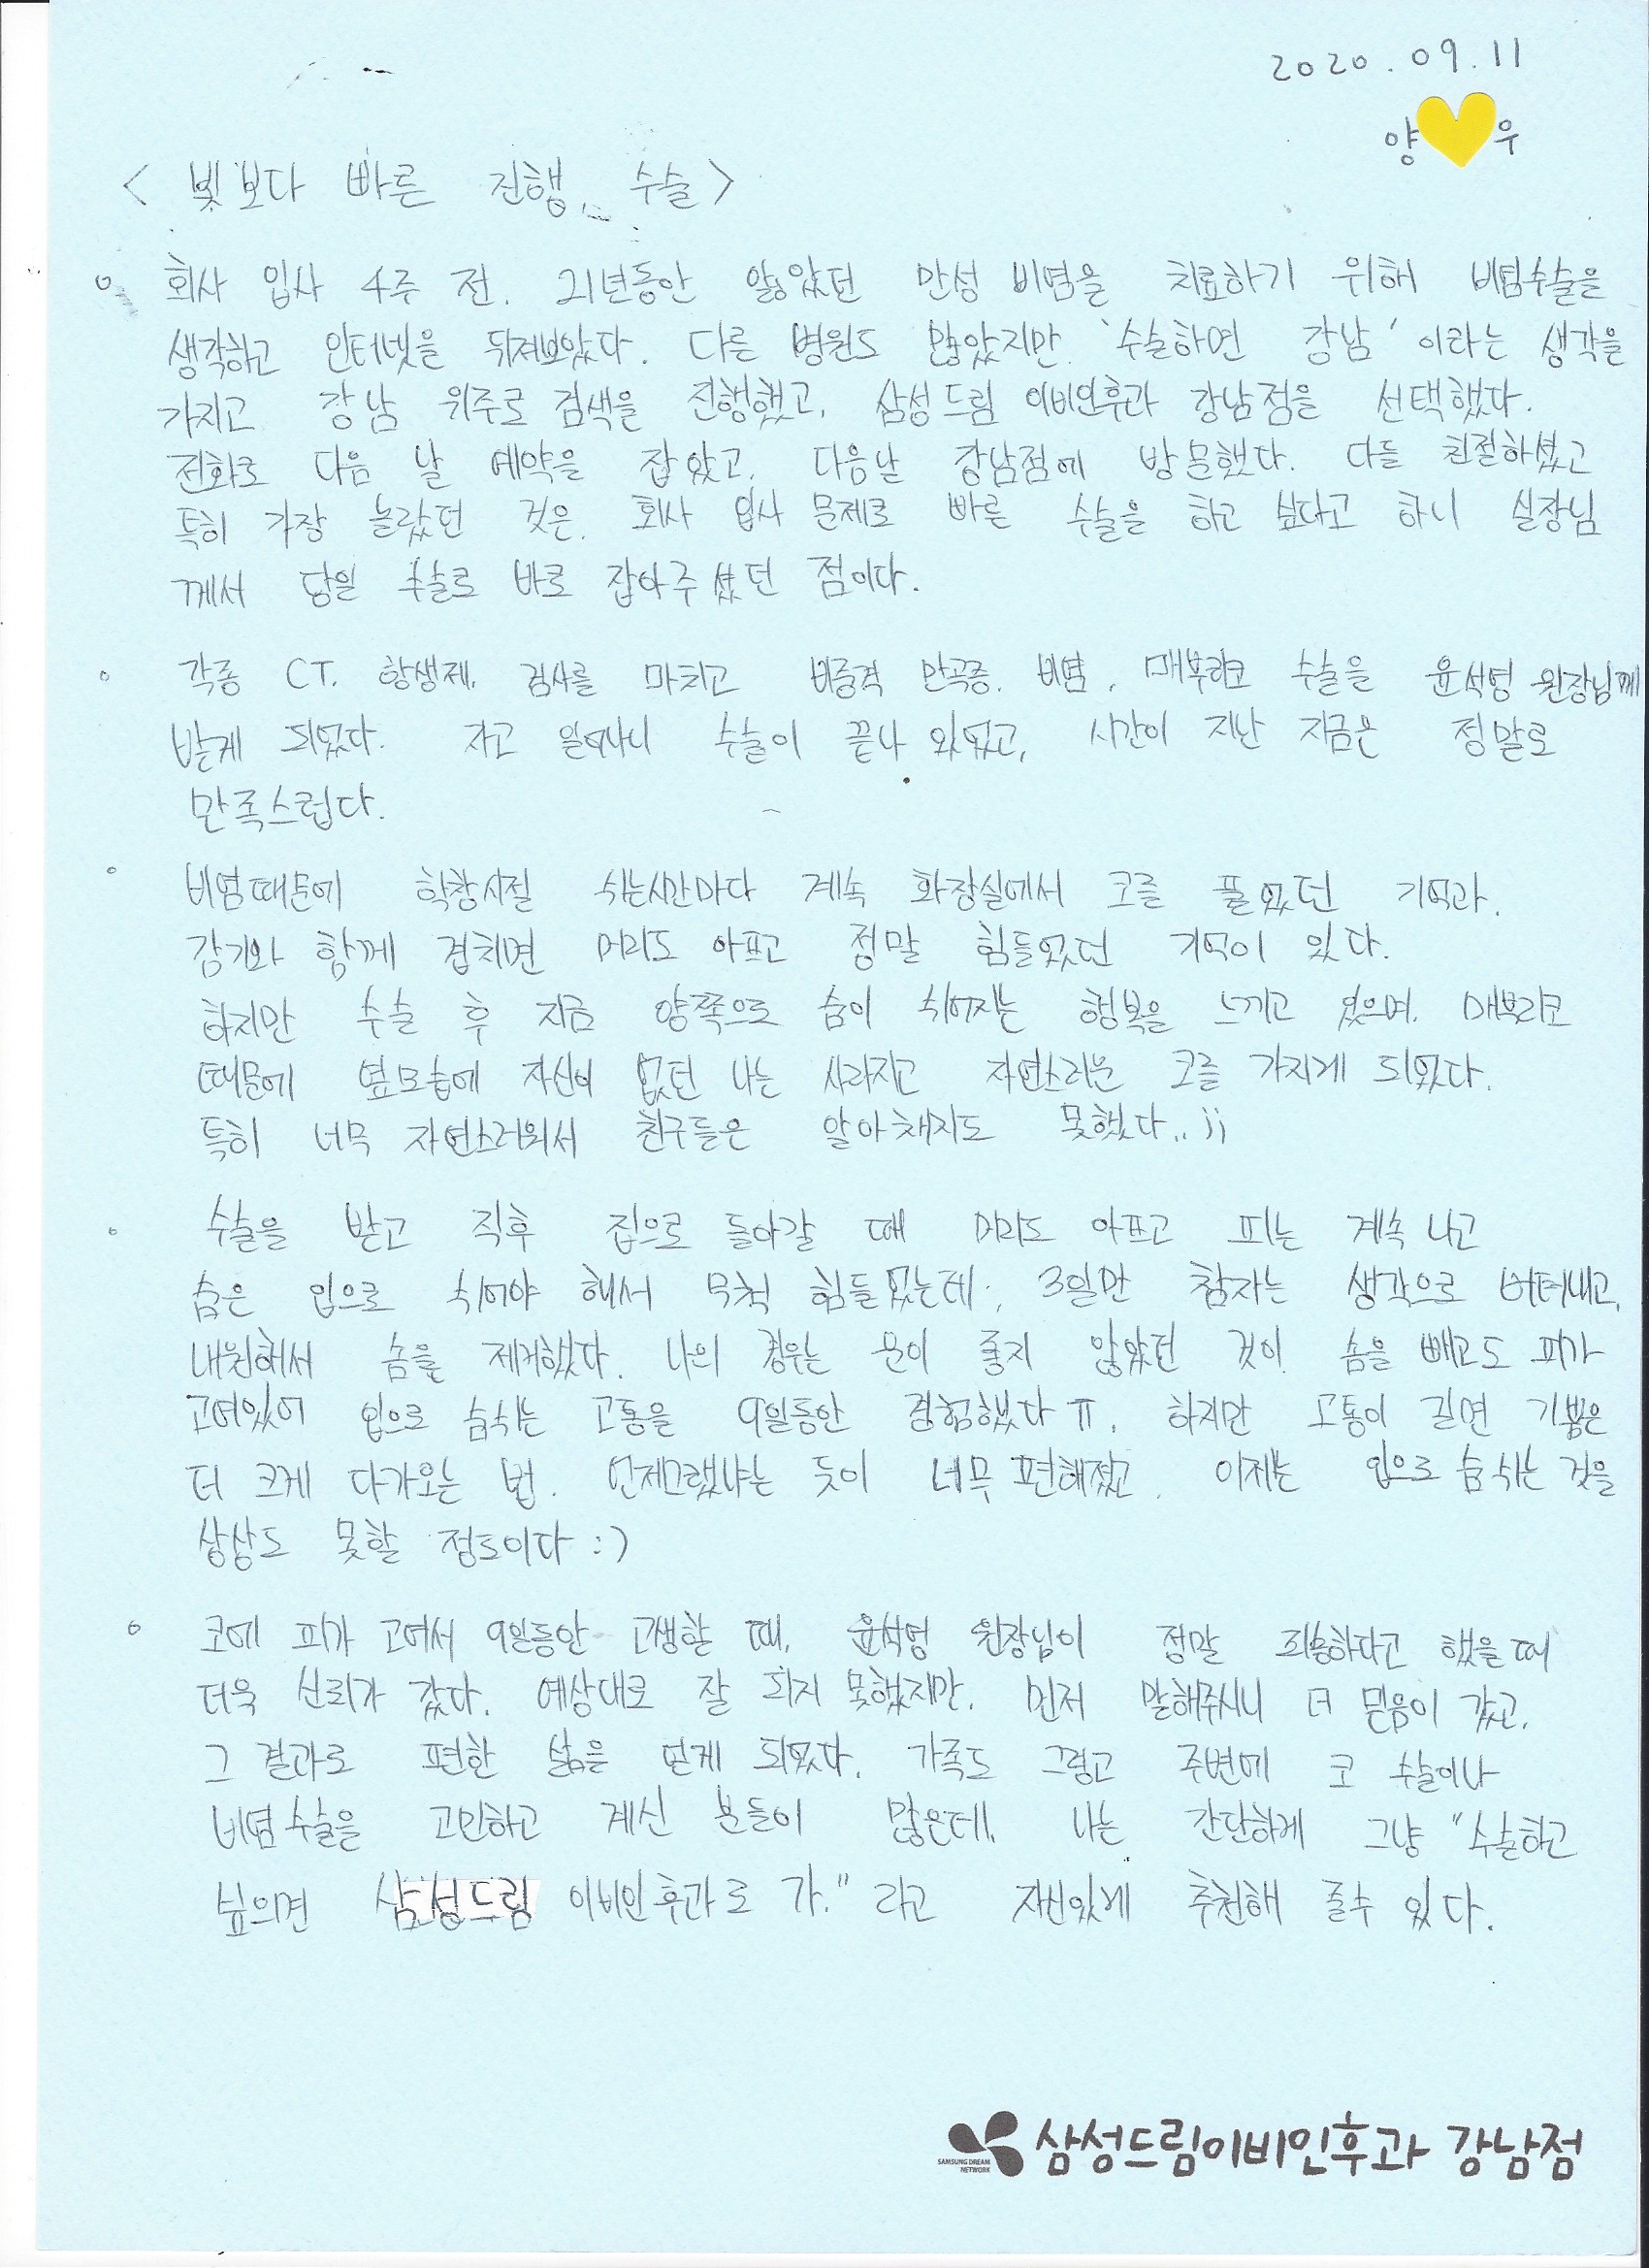 2020.09.11
양 우
< 빛보다 빠른 진행, 수술 >
회사 입사 4주 전. 21년동안 앓았던 만성 비염을 치료하기 위해 비염수술을
생각하고 인터넷을 뒤져보았다. 다른 병원도 많았지만 '수술하면 강남' 이라는 생각을
가지고 강남 위주로 검색을 진행했고, 삼성드림 이비인후과 강남점을 선택했다.
전화로 다음 날 예약을 잡았고, 다음날 강남점에 방문했다. 다들 친절하셨고
특히 가장 놀랐던 것은, 회사 입사 문제로 빠른 수술을 하고 싶다고 하니 실장님
께서 당일 수술로 바로 잡아주셨던 점이다.
각종 CT, 항생제, 검사를 마치고 비중격 만곡증, 비염, 매부리코 수술을 윤석영 원장님께
받게 되었다. 자고 일어나니 수술이 끝나 있었고, 시간이 지난 지금은 정말로
만족스럽다.
비염때문에 학창시절 쉬는시간마다 계속 화장실에서 코를 풀었던 기억과,
감기와 함께 겹치면 머리도 아프고 정말 힘들었던 기억이 있다.
하지만 수술 후 지금 양쪽으로 숨이 쉬어지는 행복을 느끼고 있으며, 매부리코
때문에 옆모습에 자신이 없던 나는 사라지고 자연스러운 코를 가지게 되었다.
특히 너무 자연스러워서 친구들은 알아채지도 못했다..;;
수술을 받고 직후 집으로 돌아갈 때 머리도 아프고 피는 계속 나고
숨은 입으로 쉬어야 해서 무척 힘들었는데, 3일만 참자는 생각으로 버텨내고,
내원해서 솜을 제거했다. 나의 경우는 운이 좋지 않았던 것이 솜을 빼고도 피가
고여있어 입으로 숨쉬는 고통을 9일동안 경험했다ㅠ. 하지만 고통이 길면 기쁨은
더 크게 다가오는 법. 언제그랬냐는 듯이 너무 편해졌고, 이제는 입으로 숨쉬는 것을
상상도 못할 정도이다 :)
코에 피가 고여서 9일동안 고생할 때, 윤석영 원장님이 정말 죄송하다고 했을때
더욱 신뢰가 갔다. 예상대로 잘 되지 못했지만, 먼저 말해주시니 더 믿음이 갔고,
그 결과로 편한 삶을 얻게 되었다. 가족도 그렇고 주변에 코 수술이나
비염수술을 고민하고 계신 분들이 많은데, 나는 간단하게 그냥 "수술하고
싶으면 삼성드림 이비인후과로 가." 라고 자신있게 추천해 줄수 있다.
SAMSUNG DREAM
NETWORK
삼성드림이비인후과 강남점